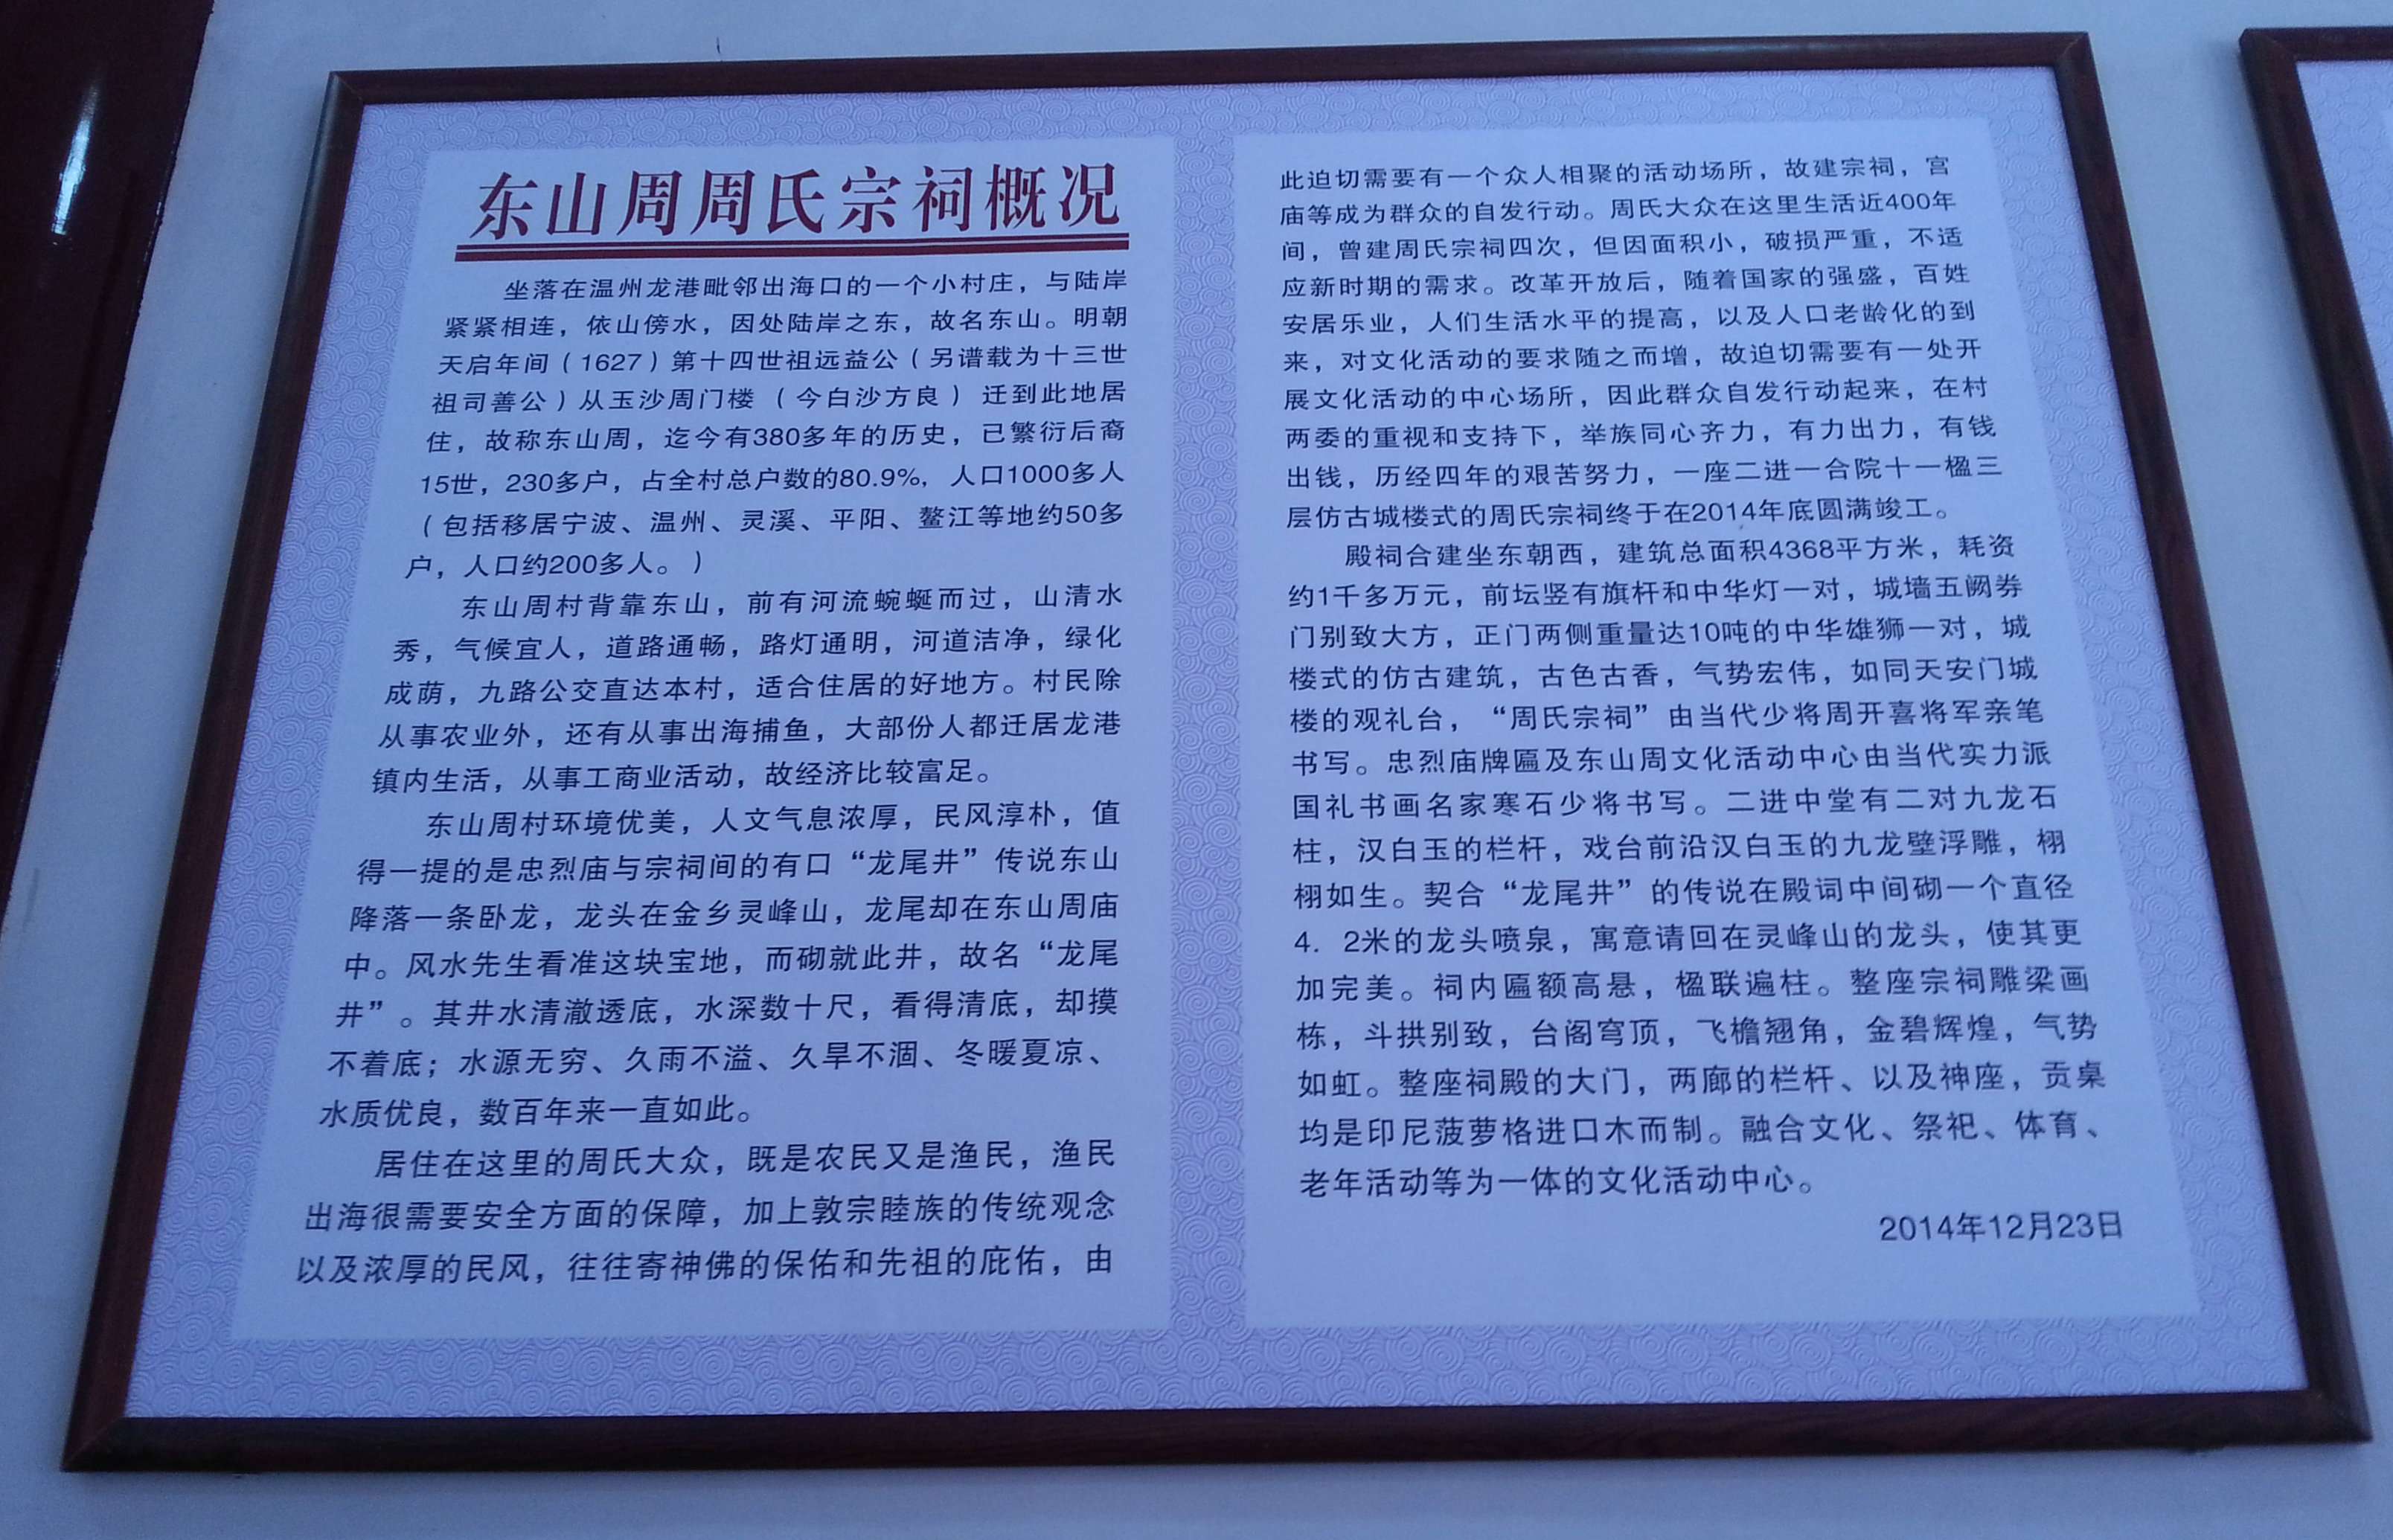 东山周周氏宗祠概况
坐落在温州龙港毗邻出海口的一个小村庄，与陆岸
紧紧相连，依山傍水，因处陆岸之东，故名东山。明朝
天启年间（1627）第十四世祖远益公（另谱载为十三世
祖司善公）从玉沙周门楼（今白沙方良）迁到此地居
住，故称东山周，迄今有380多年的历史，已繁衍后裔
15世，230多户，占全村总户数的80.9%，人口1000多人
（包括移居宁波、温州、灵溪、平阳、鳌江等地约50多
户，人口约200多人。）
东山周村背靠东山，前有河流蜿蜒而过，山清水
秀，气候宜人，道路通畅，路灯通明，河道洁净，绿化
成荫，九路公交直达本村，适合住居的好地方。村民除
从事农业外，还有从事出海捕鱼，大部份人都迁居龙港
镇内生活，从事工商业活动，故经济比较富足。
东山周村环境优美，人文气息浓厚，民风淳朴，值
得一提的是忠烈庙与宗祠间的有口“龙尾井”传说东山
降落一条卧龙，龙头在金乡灵峰山，龙尾却在东山周庙
中。风水先生看准这块宝地，而砌就此井，故名“龙尾
井”。其井水清澈透底，水深数十尺，看得清底，却摸
不着底；水源无穷、久雨不溢、久旱不涸、冬暖夏凉、
水质优良，数百年来一直如此。
居住在这里的周氏大众，既是农民又是渔民，渔民
出海很需要安全方面的保障，加上敦宗睦族的传统观念
以及浓厚的民风，往往寄神佛的保佑和先祖的庇佑，由
此迫切需要有一个众人相聚的活动场所，故建宗祠，宫
庙等成为群众的自发行动。周氏大众在这里生活近400年
间，曾建周氏宗祠四次，但因面积小，破损严重，不适
应新时期的需求。改革开放后，随着国家的强盛，百姓
安居乐业，人们生活水平的提高，以及人口老龄化的到
来，对文化活动的要求随之而增，故迫切需要有一处开
展文化活动的中心场所，因此群众自发行动起来，在村
两委的重视和支持下，举族同心齐力，有力出力，有钱
出钱，历经四年的艰苦努力，一座二进一合院十一楹三
层仿古城楼式的周氏宗祠终于在2014年底圆满竣工。
殿祠合建坐东朝西，建筑总面积4368平方米，耗资
约1千多万元，前坛竖有旗杆和中华灯一对，城墙五阙券
门别致大方，正门两侧重量达10吨的中华雄狮一对，城
楼式的仿古建筑，古色古香，气势宏伟，如同天安门城
楼的观礼台，“周氏宗祠”由当代少将周开喜将军亲笔
书写。忠烈庙牌匾及东山周文化活动中心由当代实力派
国礼书画名家寒石少将书写。二进中堂有二对九龙石
柱，汉白玉的栏杆，戏台前沿汉白玉的九龙壁浮雕，栩
栩如生。契合“龙尾井”的传说在殿词中间砌一个直径
4．2米的龙头喷泉，寓意请回在灵峰山的龙头，使其更
加完美。祠内匾额高悬，楹联遍柱。整座宗祠雕梁画
栋，斗拱别致，台阁穹顶，飞檐翘角，金碧辉煌，气势
如虹。整座祠殿的大门，两廊的栏杆、以及神座，贡桌
均是印尼菠萝格进口木而制。融合文化、祭祀、体育、
老年活动等为一体的文化活动中心。
2014年12月23日